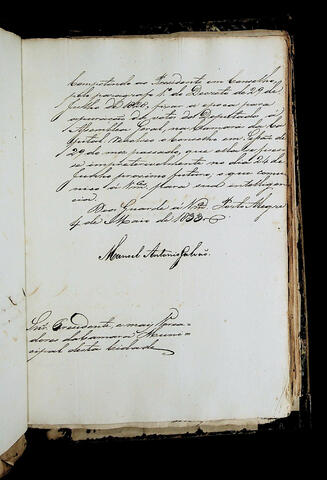 Competindo ao Presidente em Conselho,
pelo paragrafo 1º do Decreto de 29 de
Julho de 1828, fixar a epoca para
apuração do voto dos Deputados á
Assemblea Geral, na Camara da Ca-
pital, resolveo o Conselho em Sessão de
29 do mez passado, que ella se fizes-
se impreterivelmente no dia 24 de
Junho proximo futuro, o que commu-
nico á Vmces para sua intelligen-
cia.
Deos Guarde á Vmces Porto Alegre
4 de Maio de 1833.
Manuel Antonio Galvão.
Snr. Presidente, e mais Verea-
dores da Camara Muni-
cipal desta Cidade